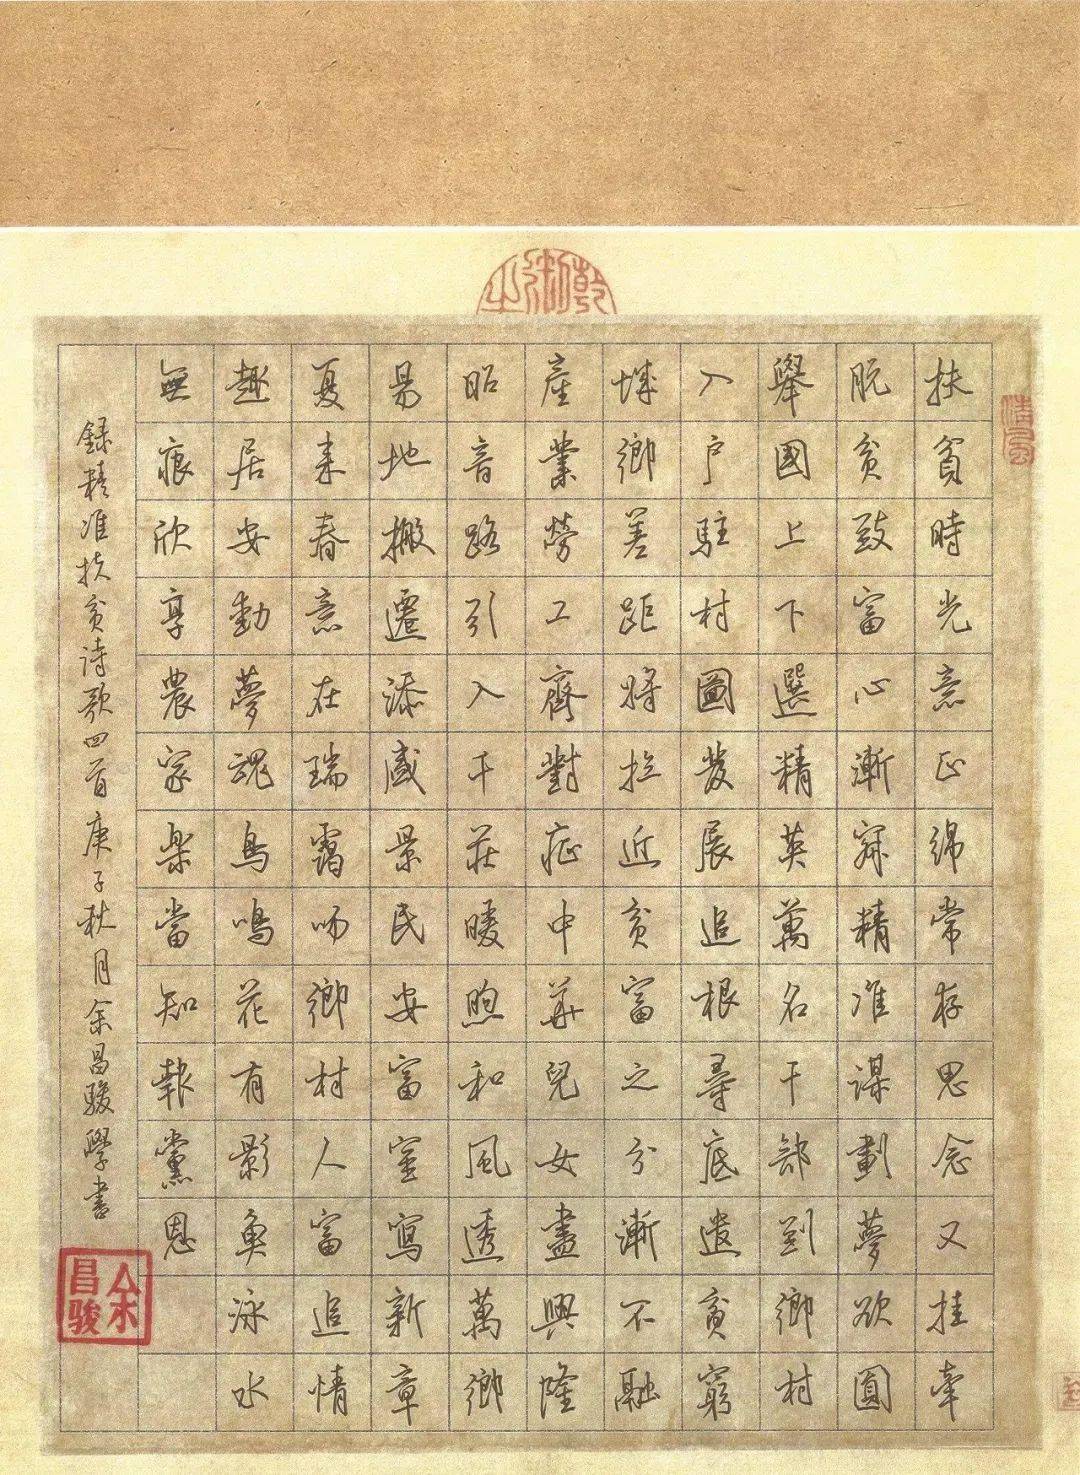 扶貧時光意正綿常存思念又挂牽
脱贫致富心漸精准谋劃夢欲圓
舉國上下選精英萬名干部到鄉村
入户駐村圖發展追根尋底遣貧窮
城鄉差距將拉近贫富之分漸不融
產業勞工齊對症中華兒女盡興隆
昭音路引入干莊暖煦和風透萬鄉
易地搬遷添盛景民安富室寫新章
夏来春意在瑞靄吻鄉村人富追情
趣居安動夢魂鳥鳴花有影魚泳水
無痕欣享農家樂當知報黨恩
録精准扶贫诗歌四首庚子秋月余昌駿學書
余昌骏